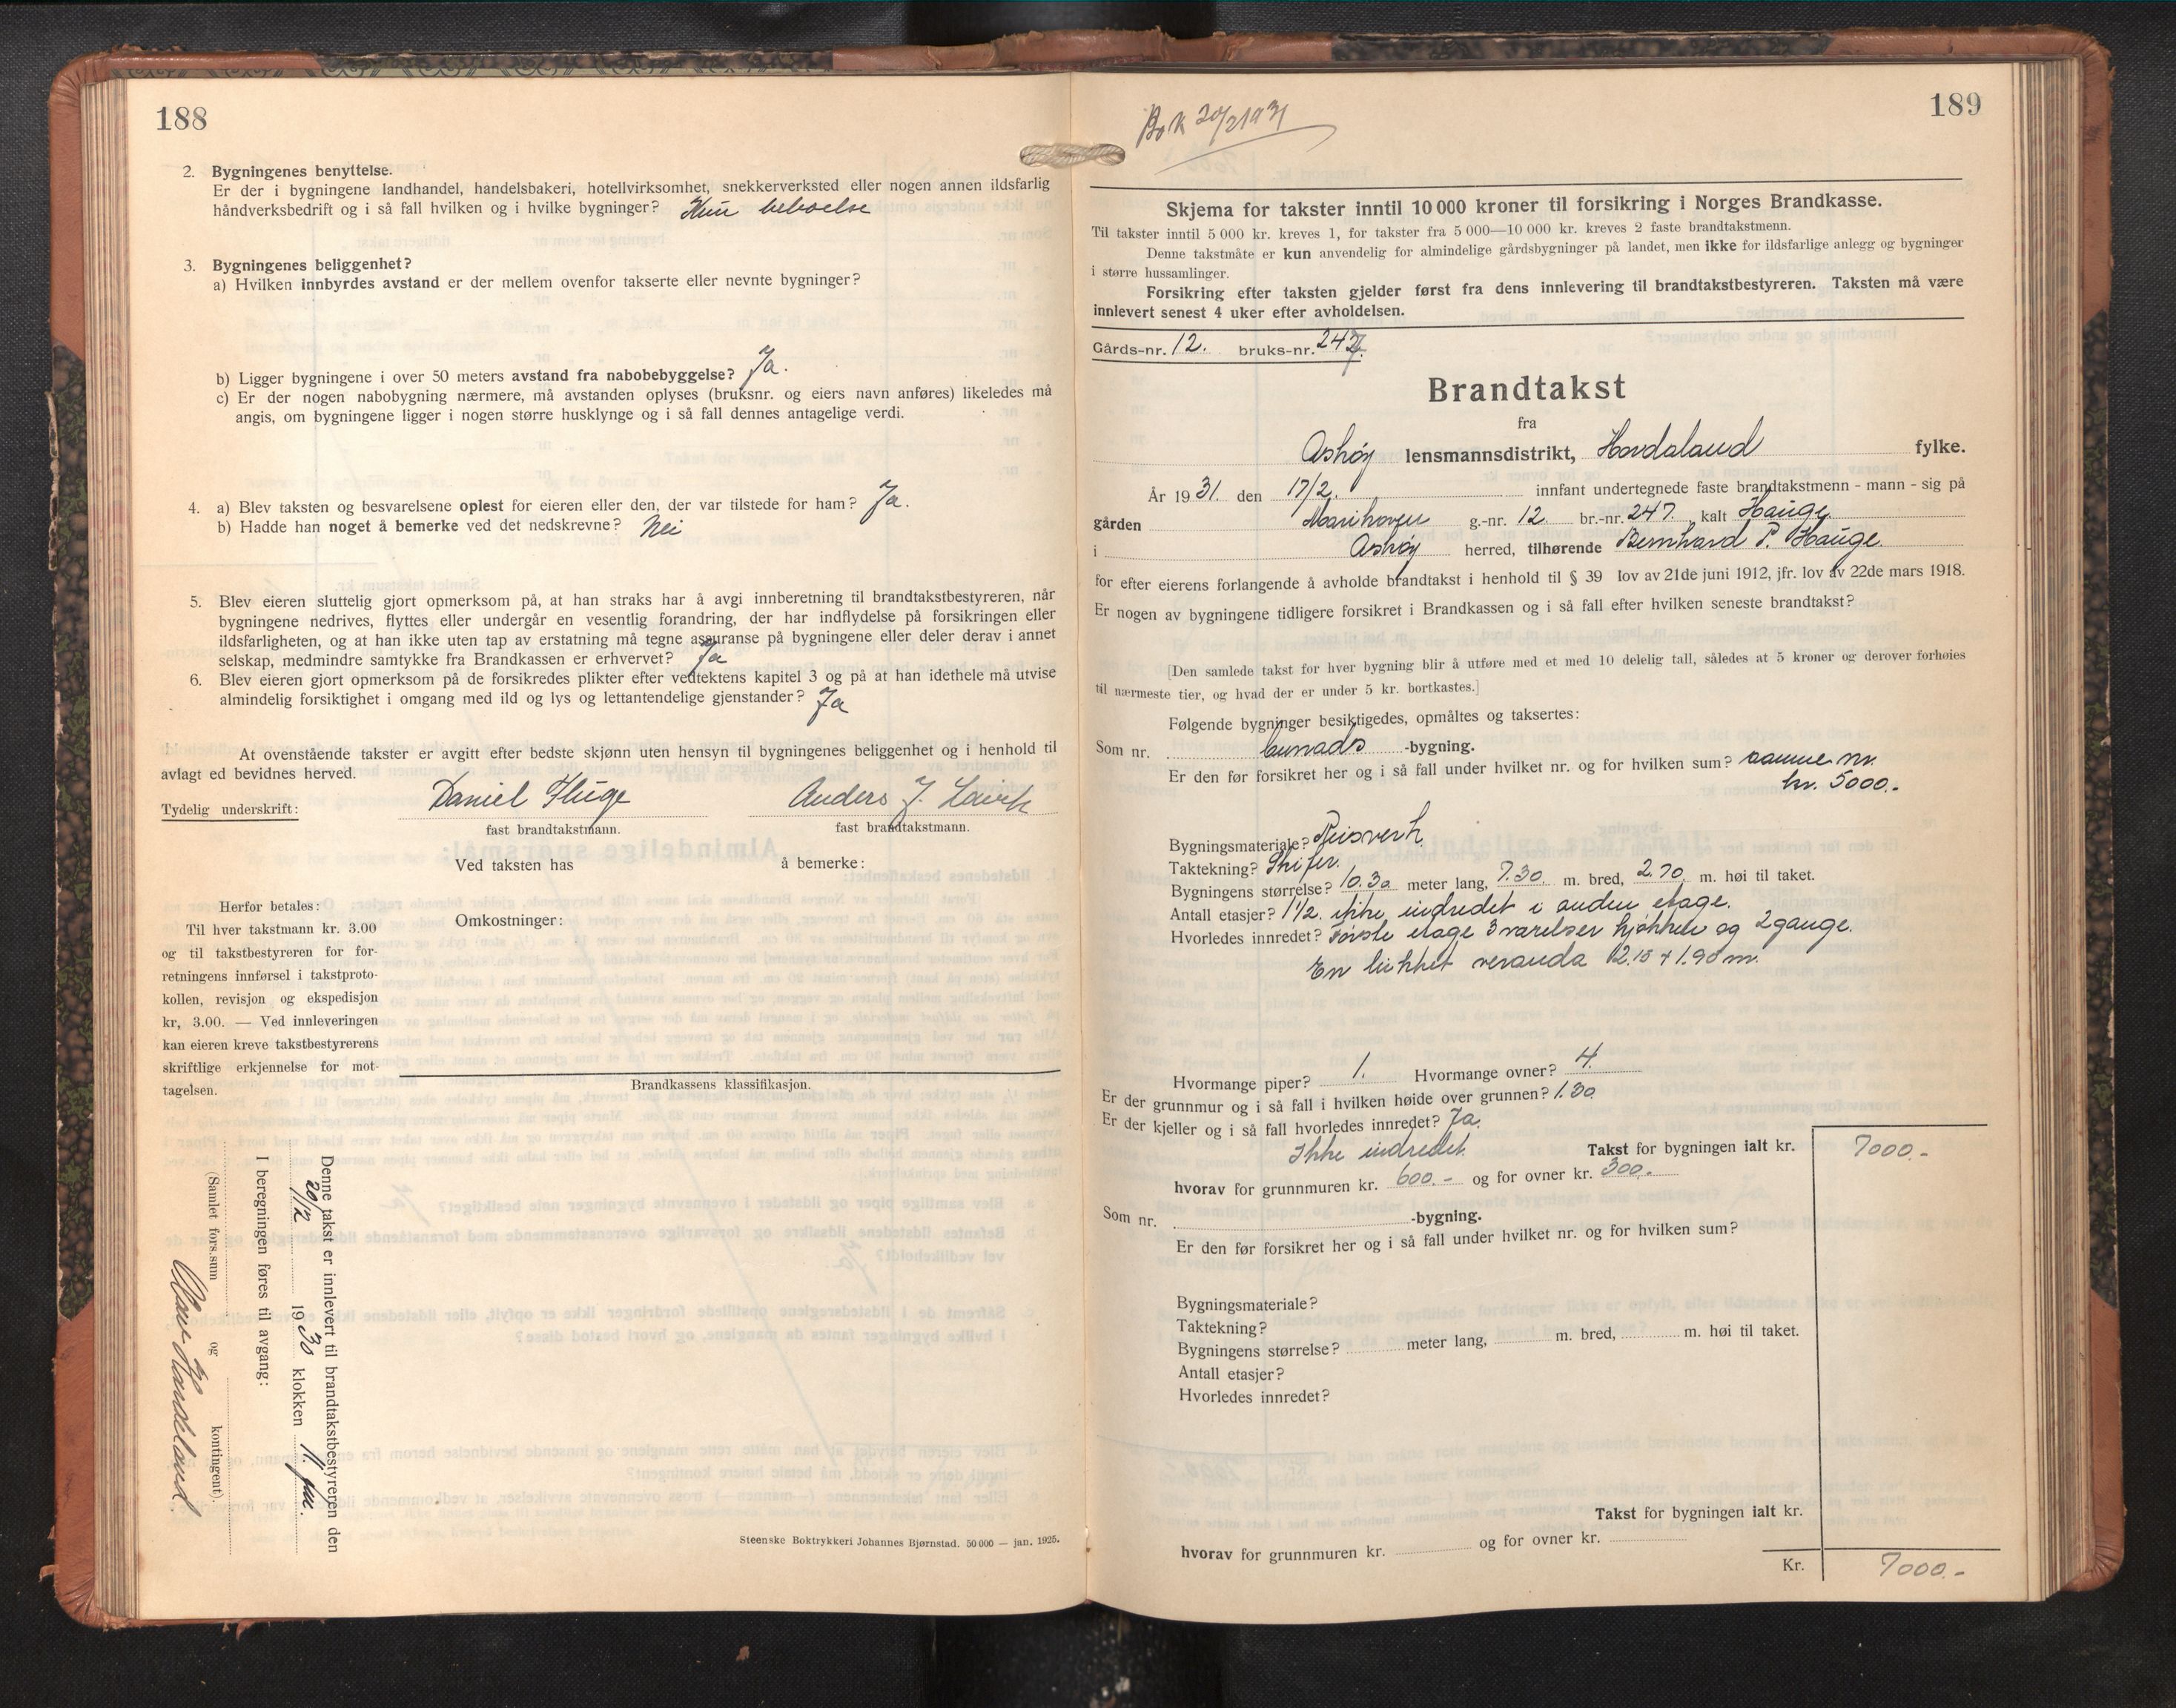 188
2. Bygningenes benyttelse.
Er der i bygningene landhandel, handelsbakeri, hotellvirksomhet, snekkerverksted eller nogen annen ildsfarlig
håndverksbedrift og i så fall hvilken og i hvilke bygninger? Kun beboelse
3. Bygningenes beliggenhet?
a) Hvilken innbyrdes avstand er der mellem ovenfor takserte eller nevnte bygninger?
b) Ligger bygningene i over 50 meters avstand fra nabobebyggelse? Ja.
c) Er der nogen nabobygning nærmere, må avstanden oplyses (bruksnr. og eiers navn anføres) likeledes må
angis, om bygningene ligger i nogen større husklynge og i så fall dennes antagelige verdi.
4. a) Blev taksten og besvarelsene oplest for eieren eller den, der var tilstede for ham? Ja.
b) Hadde han noget å bemerke ved det nedskrevne? Nei
5. Blev eieren sluttelig gjort opmerksom på, at han straks har å avgi innberetning til brandtakstbestyreren, når
bygningene nedrives, flyttes eller undergår en vesentlig forandring, der har indflydelse på forsikringen eller
ildsfarligheten, og at han ikke uten tap av erstatning må tegne assuranse på bygningene eller deler derav i annet
selskap, medmindre samtykke fra Brandkassen er erhvervet? Ja
6. Blev eieren gjort opmerksom på de forsikredes plikter efter vedtektens kapitel 3 og på at han idethele må utvise
almindelig forsiktighet i omgang med ild og lys og lettantendelige gjenstander? Ja
At ovenstående takster er avgitt efter bedste skjønn uten hensyn til bygningenes beliggenhet og i henhold til
avlagt ed bevidnes herved.
Tydelig underskrift: Daniel Anders J.
fast brandtakstmann. fast brandtakstmann.
Ved taksten has å bemerke:
Omkostninger:
Herfor betales:
Til hver takstmann kr. 3.00
og til takstbestyreren for for-
retningens innførsel i takstproto-
kollen, revisjon og ekspedisjon
kr, 3.00. — Ved innleveringen
kan eieren kreve takstbestyrerens
skriftlige erkjennelse for mot-
tagelsen.
Brandkassens klassifikasjon.
Denne takst er innlevert til brandtakstbestyreren den
20/2 1930 klokken 11 fm.
I beregningen føres til avgang:
(Samlet fors.sum og kontingent).
Olav Hordeland
Steenske Boktrykkeri Johannes Bjørnstad. 50 000 — jan. 1925.
189
Bok 20/2 1931
Skjema for takster inntil 10 000 kroner til forsikring i Norges Brandkasse.
Til takster inntil 5 000 kr. kreves 1, for takster fra 5 000—10 000 kr. kreves 2 faste brandtakstmenn.
Denne takstmåte er kun anvendelig for almindelige gårdsbygninger på landet, men ikke for ildsfarlige anlegg og bygninger
i større hussamlinger.
Forsikring efter taksten gjelder først fra dens innlevering til brandtakstbestyreren. Taksten må være
innlevert senest 4 uker efter avholdelsen.
Gårds-nr. 12. bruks-nr. 247.
Brandtakst
fra
Askøy lensmannsdistrikt, Hordaland fylke.
År 1931. den 17/2. innfant undertegnede faste brandtakstmenn - mann - sig på
gården Marihoven g.-nr. 12 br.-nr. 247. kalt Hauge
i Askøy herred, tilhørende Bernhard P. Hauge.
for efter eierens forlangende å avholde brandtakst i henhold til § 39 lov av 21de juni 1912, jfr. lov av 22de mars 1918.
Er nogen av bygningene tidligere forsikret i Brandkassen og i så fall efter hvilken seneste brandtakst?
[Den samlede takst for hver bygning blir å utføre med et med 10 delelig tall, således at 5 kroner og derover forhøies
til nærmeste tier, og hvad der er under 5 kr. bortkastes.]
Følgende bygninger besiktigedes, opmåltes og taksertes:
Som nr. bunads -bygning.
Er den før forsikret her og i så fall under hvilket nr. og for hvilken sum? samme nr.
kr. 5000.-
Bygningsmateriale? Reisverk
Taktekning? Skifer.
Bygningens størrelse? 10.30 meter lang, 7.30. m. bred, 2.70. m. høi til taket.
Antall etasjer? 1 1/2. ikke indredet i anden etage.
Hvorledes innredet? Første etage 3 værelser kjøkken og 2 gange.
En lukket veranda 2.15 + 1.90 m.
Hvormange piper? 1. Hvormange ovner? 4.
Er der grunnmur og i så fall i hvilken høide over grunnen? 1.30
Er der kjeller og i så fall hvorledes innredet? Ja.
Ikke indredet. Takst for bygningen ialt kr. 7000.-
hvorav for grunnmuren kr. 600.- og for ovner kr. 300.-
Som nr. -bygning.
Er den før forsikret her og i så fall under hvilket nr. og for hvilken sum?
Bygningsmateriale?
Taktekning?
Bygningens størrelse? meter lang, m. bred, m. høi til taket.
Antall etasjer?
Hvorledes innredet?
Takst for bygningen ialt kr.
hvorav for grunnmuren kr. og for ovner kr.
Kr. 7000.-